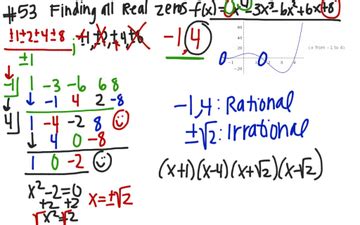 #53 Finding all Real zeros f(x)=x⁴-3x³-6x²+6x+8
±1±2±4±8
±1
-1, 4
-1 | 1 -3 -6 6 8
↓ -1 4 2 -8
4 | 1 -4 -2 8
↓ 4 0 -8
1 0 -2
x²-2=0
+2 +2
√x²=√2
x=±√2
-1,4: Rational
±√2: Irrational
(x+1)(x-4)(x+√2)(x-√2)